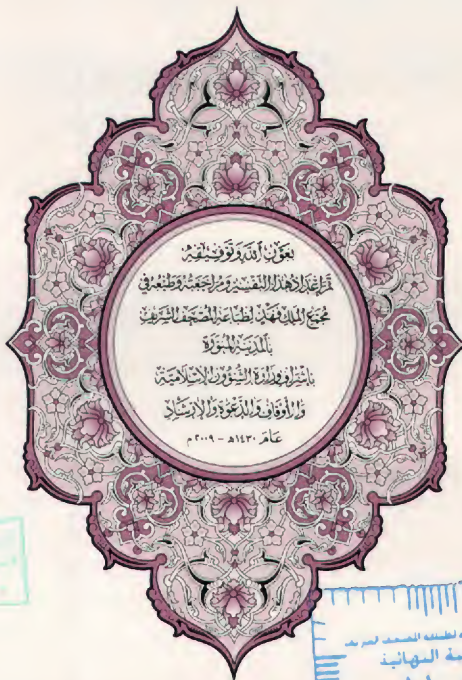 بعون الله وتوفيقه
تم إعداد هذا التفسير ومراجعته وطبعه في
مجمع الملك فهد لطباعة المصحف الشريف
بالمدينة المنورة
بإشراف وزارة الشؤون الإسلامية
والأوقاف والدعوة والإرشاد
عام ١٤٣٠هـ - ٢٠٠٩م